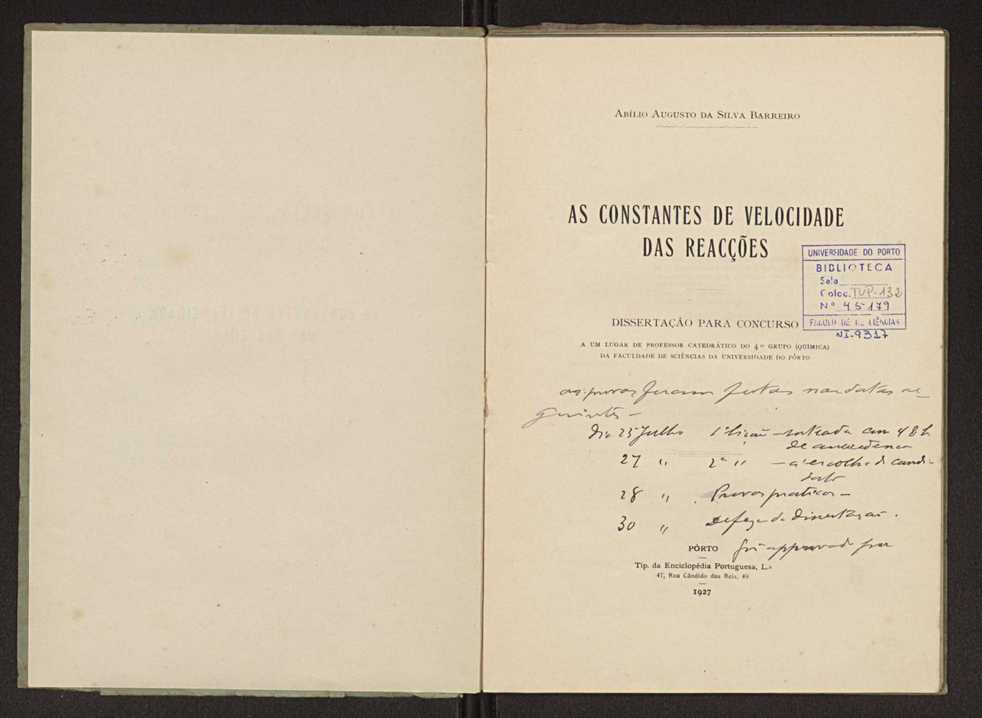 Abílio Augusto da Silva Barreiro
AS CONSTANTES DE VELOCIDADE
DAS REACÇÕES
UNIVERSIDADE DO PORTO
BIBLIOTECA
Sala
Coloc. TUP-132
N.º 45179
NI-9317
DISSERTAÇÃO PARA CONCURSO
A UM LUGAR DE PROFESSOR CATEDRÁTICO DO 4.º GRUPO (QUÍMICA)
DA FACULDADE DE SCIÊNCIAS DA UNIVERSIDADE DO PÔRTO
as provas foram feitas nas datas se-
guintes -
Dia 25 Julho 1ª lição - sorteada com 48 h
de antecedencia
27 " 2ª " - á escolha do candi-
dato
28 " Provas praticas -
30 " Defeza da Dissertação.
Foi approvado por
PÔRTO
Tip. da Enciclopédia Portuguesa, L.da
47, Rua Cândido dos Reis, 49
1927